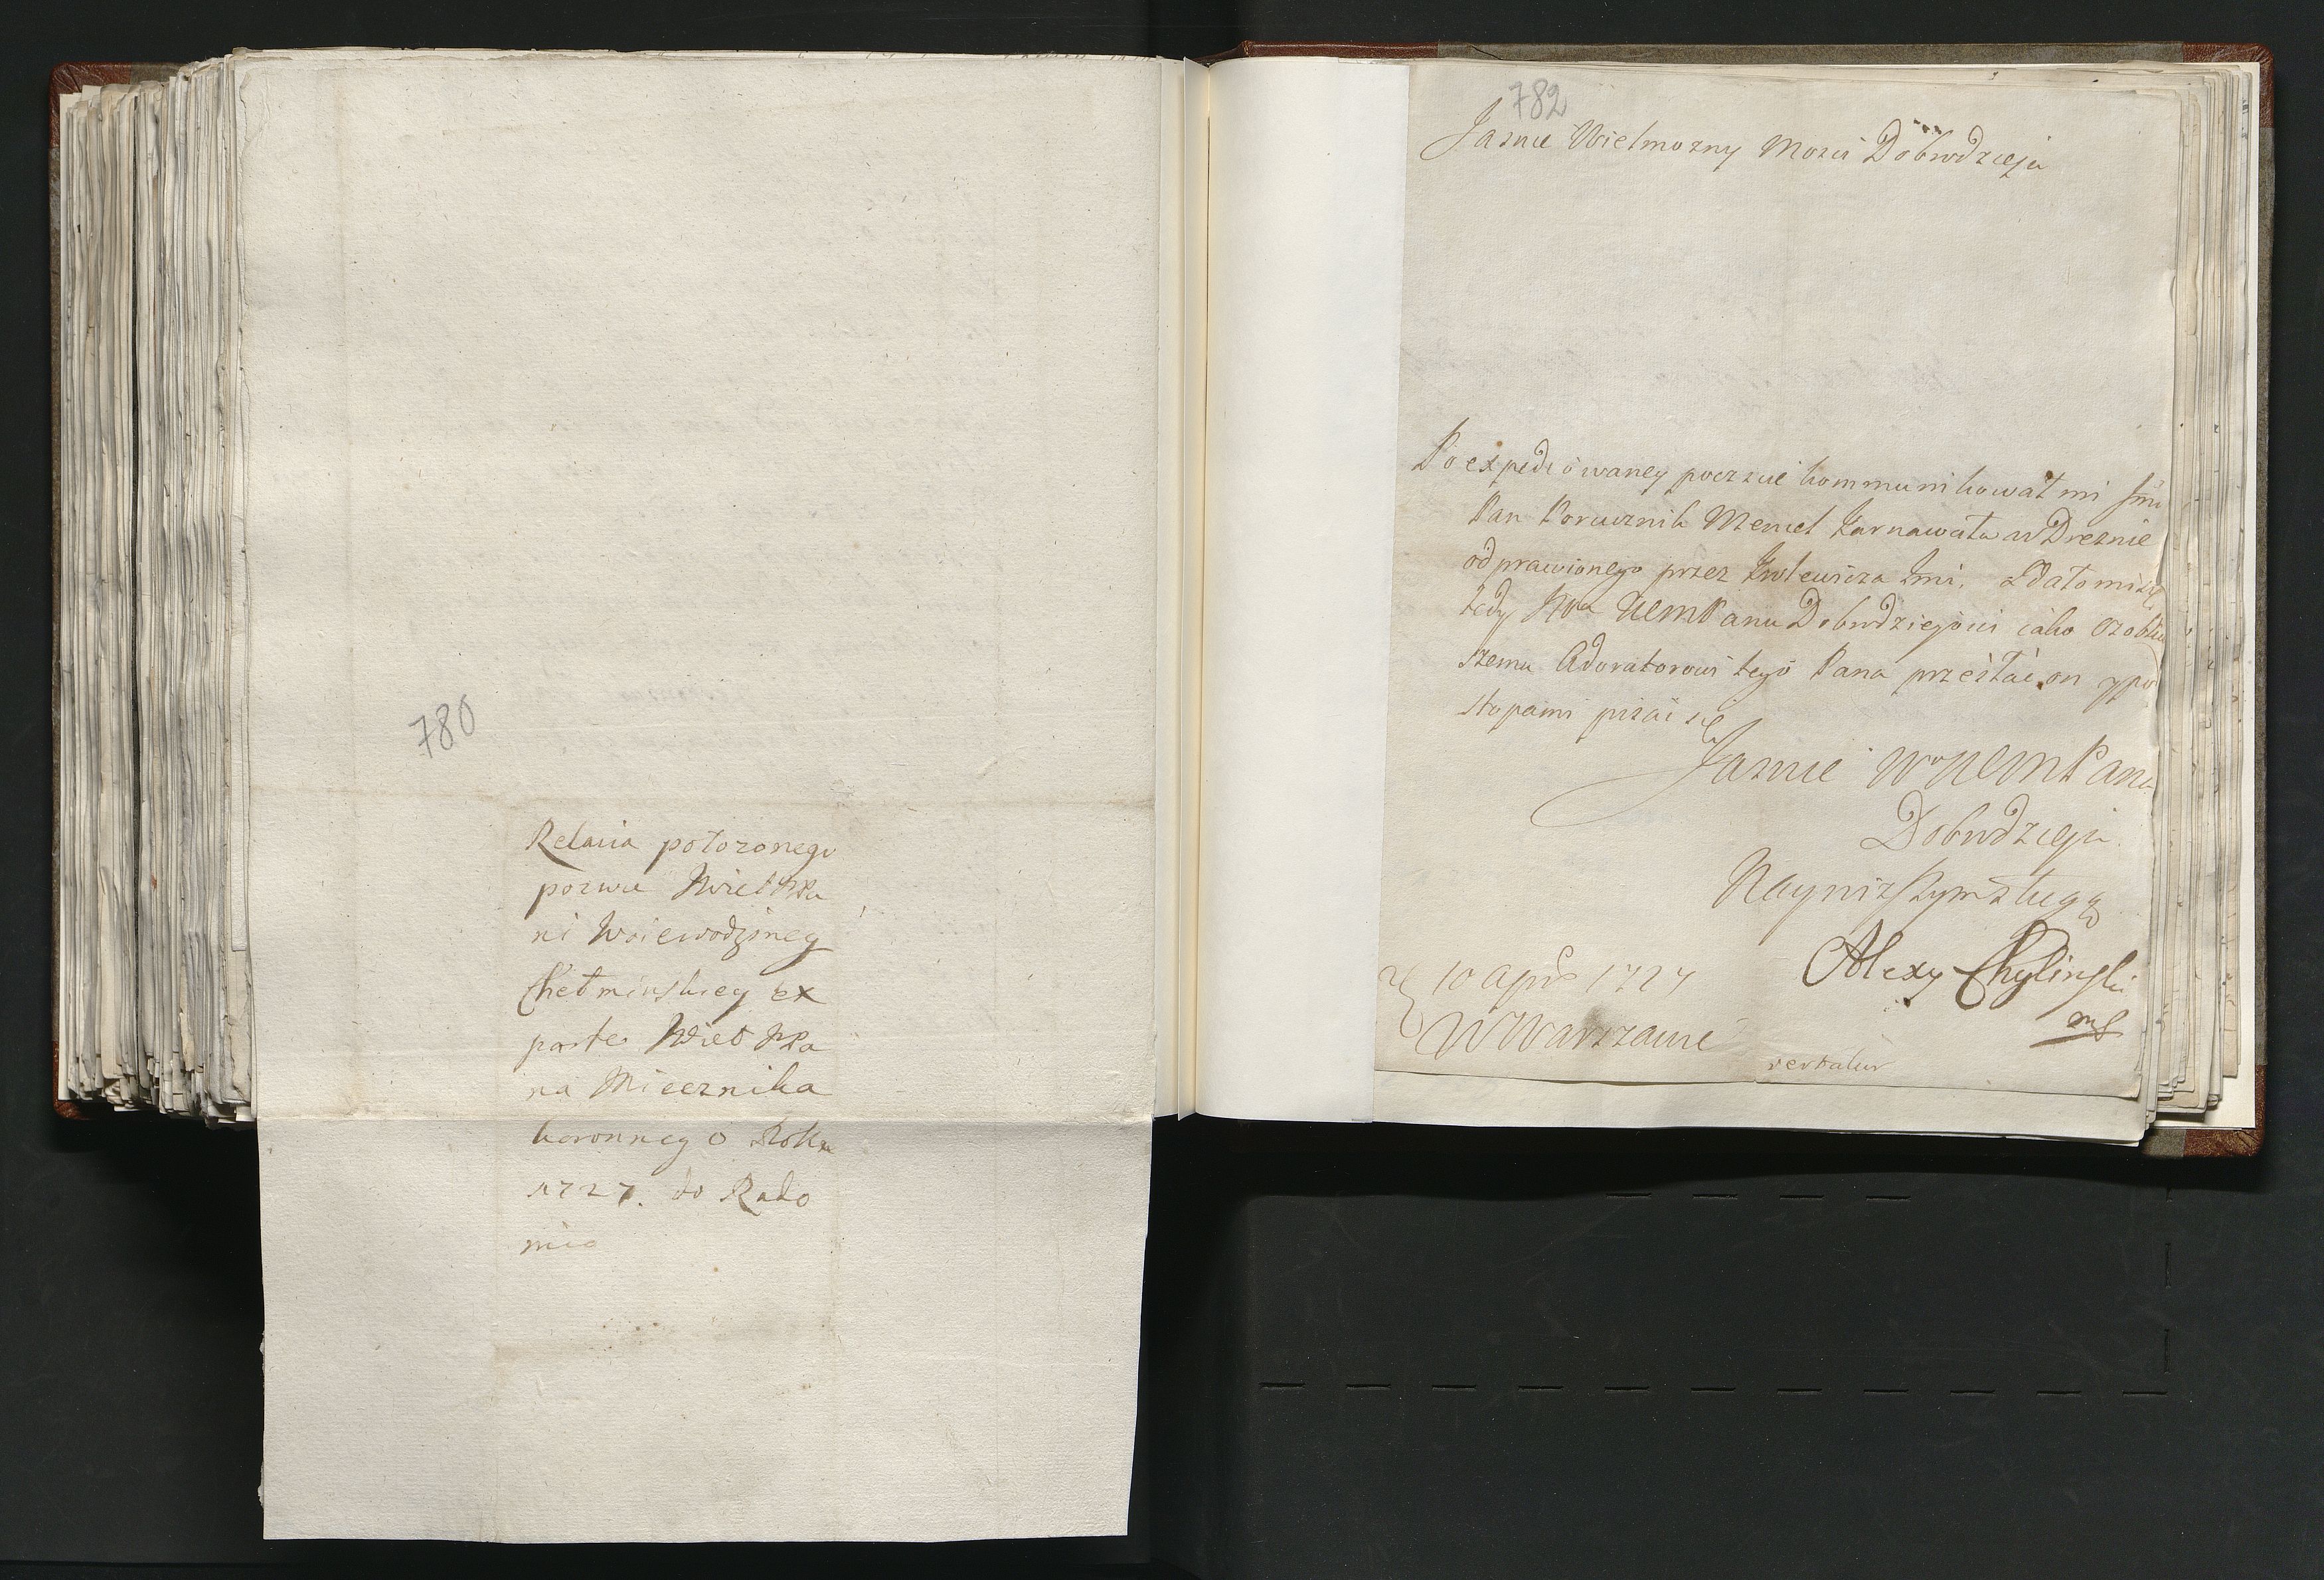 780
Relacia połozonego
pozwu Wiel JPa
ni Woiewodziney
Chełminskiey ex
parte Wiel JPa
na Miecznika
koronnego Roku
1727. do Rado
mia
782
Jasnie Wielmozny Mosci Dobrodzieju
Po expediowaney poczcie kommunikował mi Jmć
Pan Porucznik Mencel Karnawału w Dreznie
odprawionego przez Krolewicza Jmci. Zdało mi się
tedy JWa WMPanu Dobrodziejowi iako Osobliw
szemu Adoratorowi tego Pana przesłac on y pod
stopami pisac się
Jasnie Wo WMPana
Dobrodzieja
Naynizszym sługą
Alexy Chylinski
mp
10 apr 1727
W Warszawie
vertatur